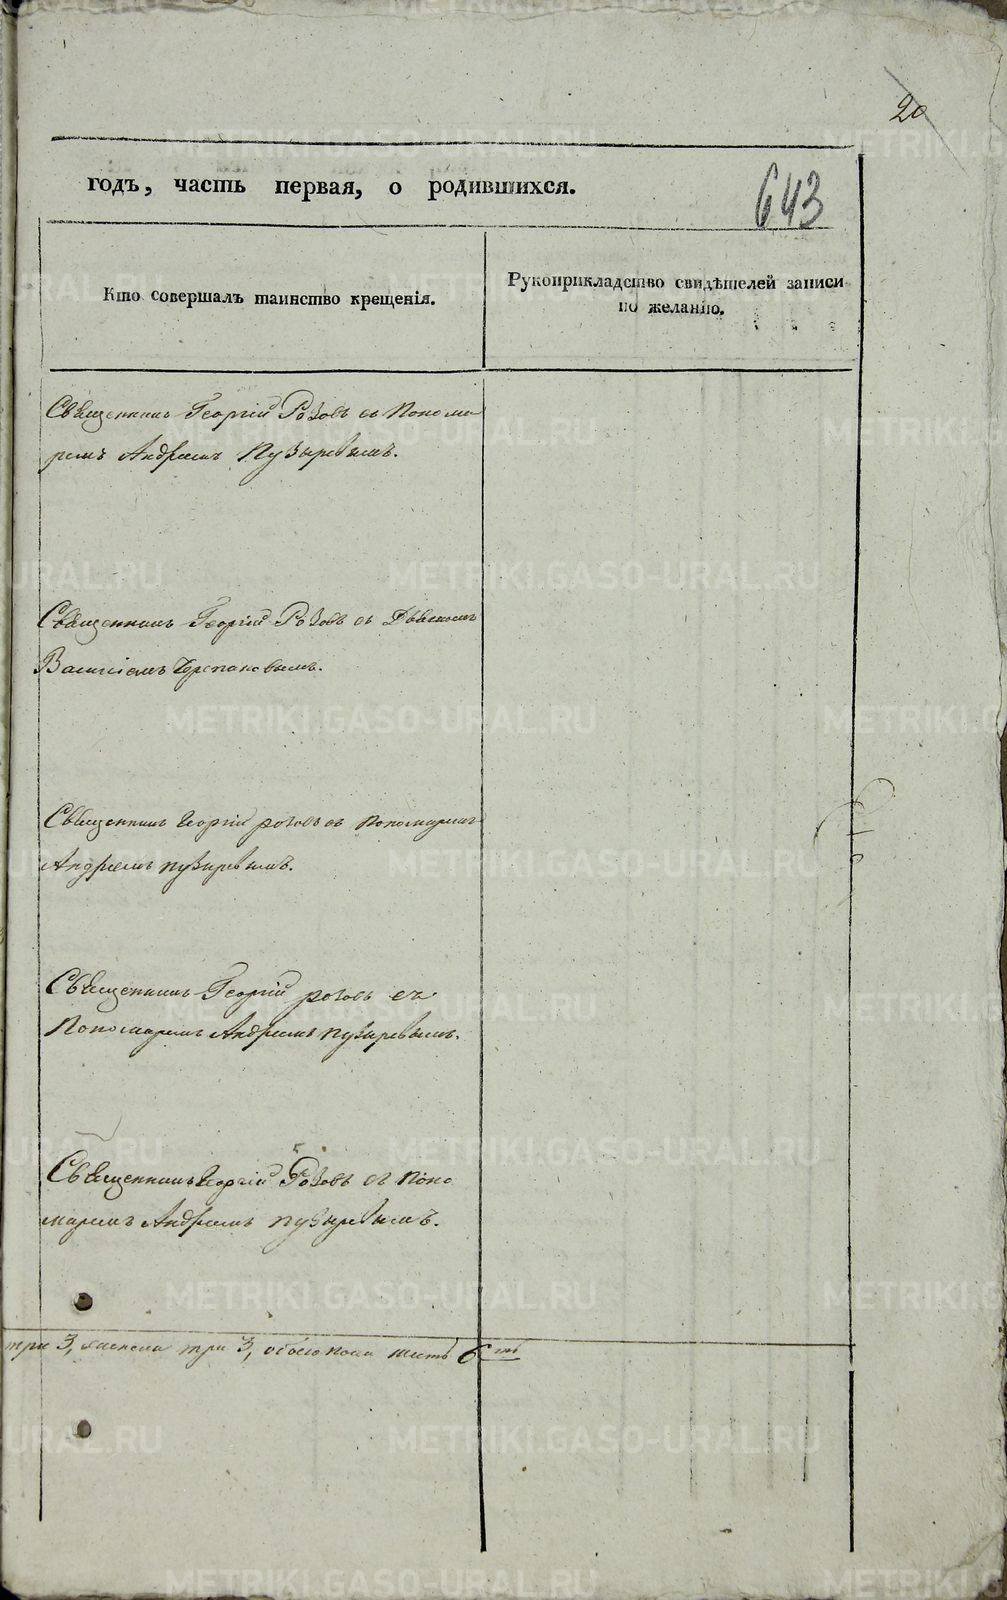 20
годъ, часть первая, о родившихся.
643
Кто совершалъ таинство крещенія.
Рукоприкладство свидѣтелей записи
по желанію.
Священникъ Георгій Розовъ съ Понома
ремъ Андреемъ Пузыревымъ.
Священникъ Георгій Розовъ съ Дьякомъ
Василіемъ Черепановымъ.
Священникъ Георгій розовъ съ пономаремъ
Андреемъ пузыревымъ.
Священникъ Георгій розовъ съ
Пономаремъ Андреемъ пузыревымъ.
Священникъ Георгій Розовъ съ поно
маремъ Андреемъ пузыревымъ.
три 3, женска три 3, обоего пола шесть 6ть
METRIKI.GASO-URAL.RU